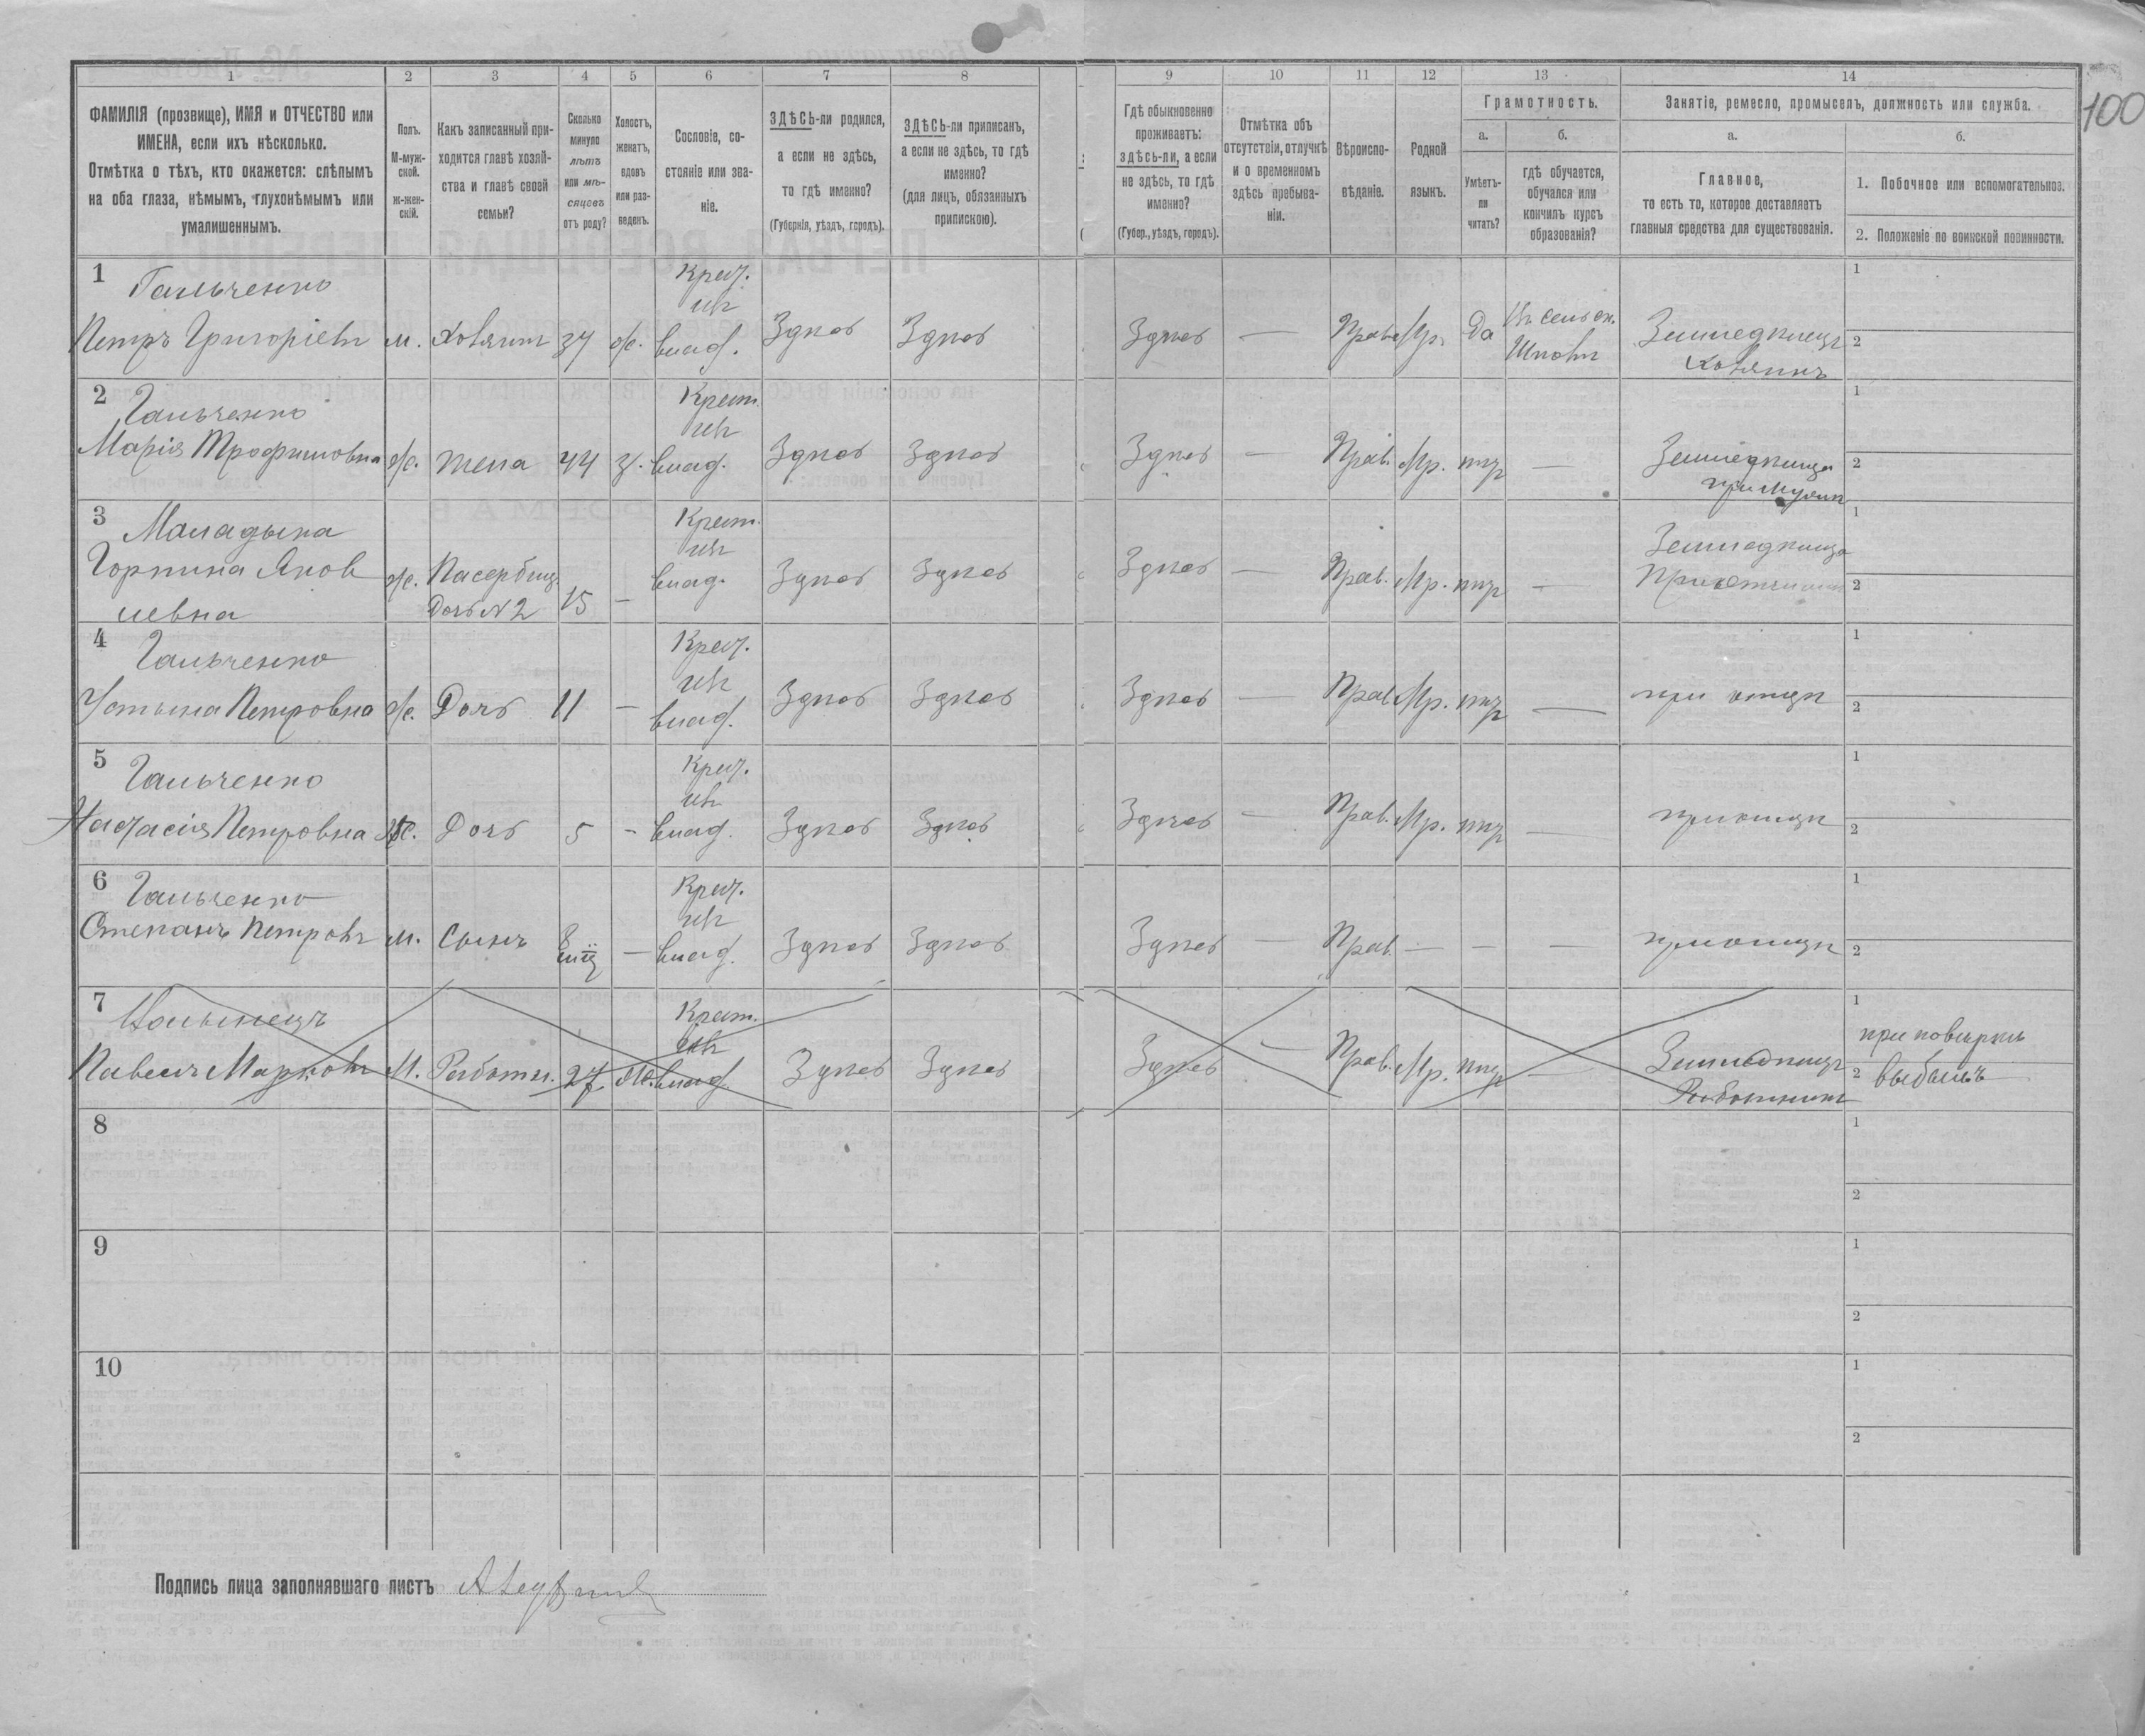 100
1
2
3
4
5
6
7
8
9
10
11
12
13
14
ФАМИЛІЯ (прозвище), ИМЯ и ОТЧЕСТВО или
ИМЕНА, если ихъ нѣсколько.
Отмѣтка о тѣхъ, кто окажется: слѣпымъ
на оба глаза, нѣмымъ, глухонѣмымъ или
умалишеннымъ.
Полъ.
М-муж-
ской.
ж-жен-
скій.
Какъ записанный при-
ходится главѣ хозяй-
ства и главѣ своей
семьи?
Сколько
минуло
лѣтъ
или мѣ-
сяцевъ
отъ роду?
Холостъ,
женатъ,
вдовъ
или раз-
веденъ.
Сословіе, со-
стояніе или зва-
ніе.
ЗДѢСЬ-ли родился,
а если не здѣсь,
то гдѣ именно?
(Губернія, уѣздъ, городъ).
ЗДѢСЬ-ли приписанъ,
а если не здѣсь, то гдѣ
именно?
(для лицъ, обязанныхъ
припискою).
Гдѣ обыкновенно
проживаетъ:
здѣсь-ли, а если
не здѣсь, то гдѣ
именно?
(Губер., уѣздъ, городъ).
Отмѣтка объ
отсутствіи, отлучкѣ
и о временномъ
здѣсь пребыва-
ніи.
Вѣроиспо-
вѣданіе.
Родной
языкъ.
Грамотность.
а.
Умѣетъ-
ли
читать?
б.
гдѣ обучается,
обучался или
кончилъ курсъ
образованія?
Занятіе, ремесло, промыселъ, должность или служба.
а.
Главное,
то есть то, которое доставляетъ
главныя средства для существованія.
б.
1. Побочное или вспомогательное.
2. Положеніе по воинской повинности.
1
Гальченко
Петръ Григорієвъ м. Хозяинъ 34 ж. Крест. изъ владѣ. Здѣсь Здѣсь Здѣсь — Прав. Мр. Да Въ сельск. Школѣ Земледѣлецъ Хозяинъ
1
2
2
Гальченко
Марія Трофимовна ж. жена 44 з. Крест. изъ влад. Здѣсь Здѣсь Здѣсь — Прав. Мр. нѣт — Земледѣлица при мужѣ
1
2
3
Горпина Яков
левна ж. Пасербиц. Дочь N 2 15 — Крест. изъ влад. Здѣсь Здѣсь Здѣсь — Прав. Мр. нѣт — Земледѣлица
1
2
4
Гальченко
Устына Петровна ж. Дочь 11 — Крест. изъ влад. Здѣсь Здѣсь Здѣсь — Прав. Мр. нѣт — при отцѣ
1
2
5
Гальченко
Настасія Петровна ж. Дочь 5 - Крест. изъ влад. Здѣсь Здѣсь Здѣсь — Прав. Мр. нѣт — при отцѣ
1
2
6
Гальченко
Степанъ Петровъ м. Сынъ 8 — Крест. изъ влад. Здѣсь Здѣсь Здѣсь — Прав. — — — при отцѣ
1
2
7
Павелъ Марковъ М. Работн. 27 Крест. изъ влад. Здѣсь Здѣсь Здѣсь — Прав. Мр. нѣт — Земледѣлецъ Работникъ
1 при повѣркѣ
2 выбылъ
8
1
2
9
1
2
10
1
2
Подпись лица заполнявшаго листъ